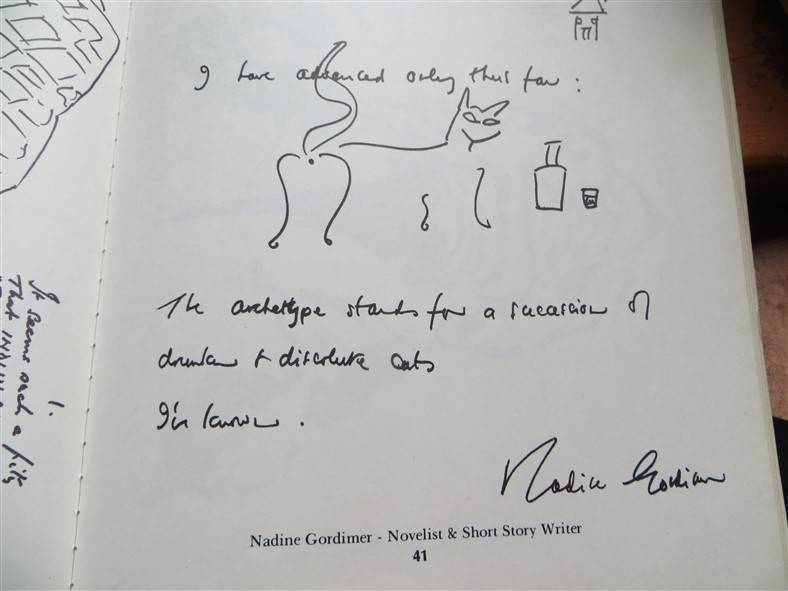 I have advanced only thus far :
The archetype stands for a succession of
drunken & dissolute cats
I've known .
Nadine Gordimer
Nadine Gordimer - Novelist & Short Story Writer
41
It seems such a pity
That